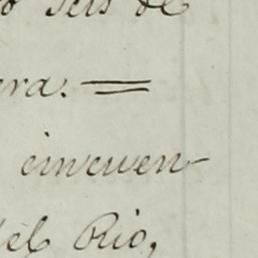 seis de
era. =
cincuen-
del Rio,